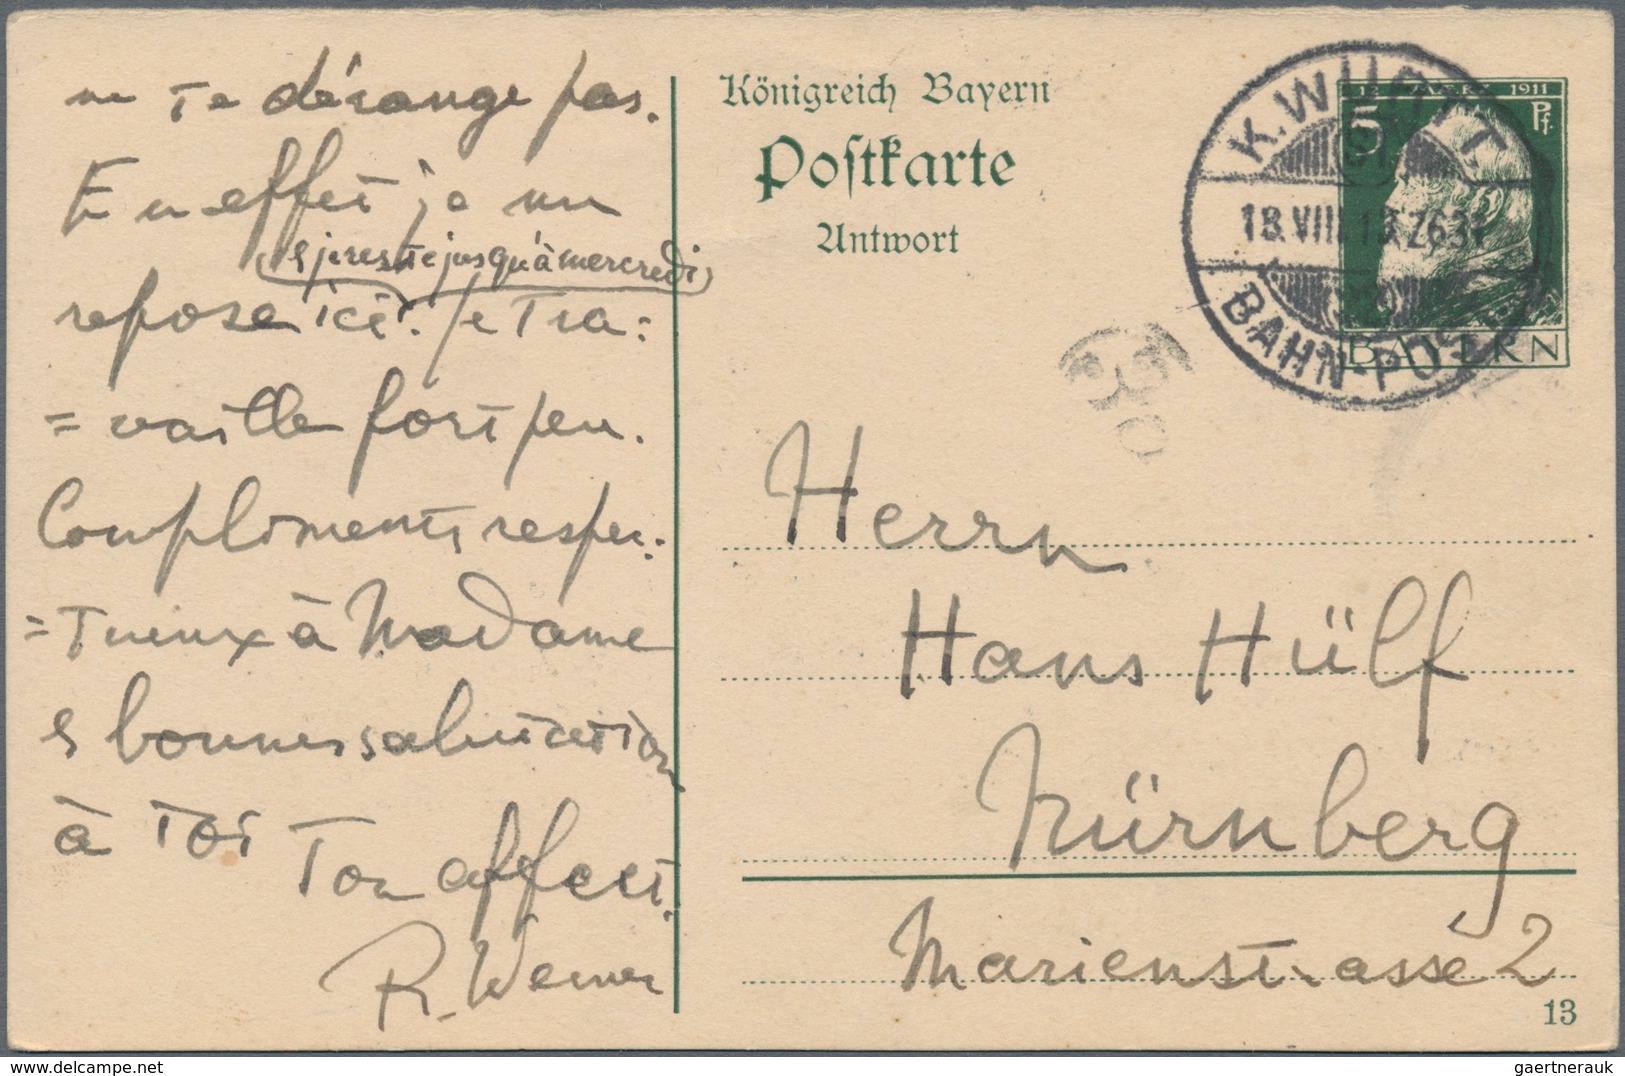 ne te dérange pas.
En effet je me
& je reste jusqu'à mercredi
repose ici. Je tra:
= vaille fort peu.
Compliments respec:
= tueux à Madame
& bonnes salutations
à toi Ton affect.
R. Werner
Königreich Bayern
Postkarte
Antwort
12 MÄRZ 1911
5 Pf.
BAYERN
K. WÜRTT.
18.VIII.13. Z631
BAHN-POST
Herrn
Hans Hülf
Nürnberg
Marienstrasse 2
13
gaertnerauk